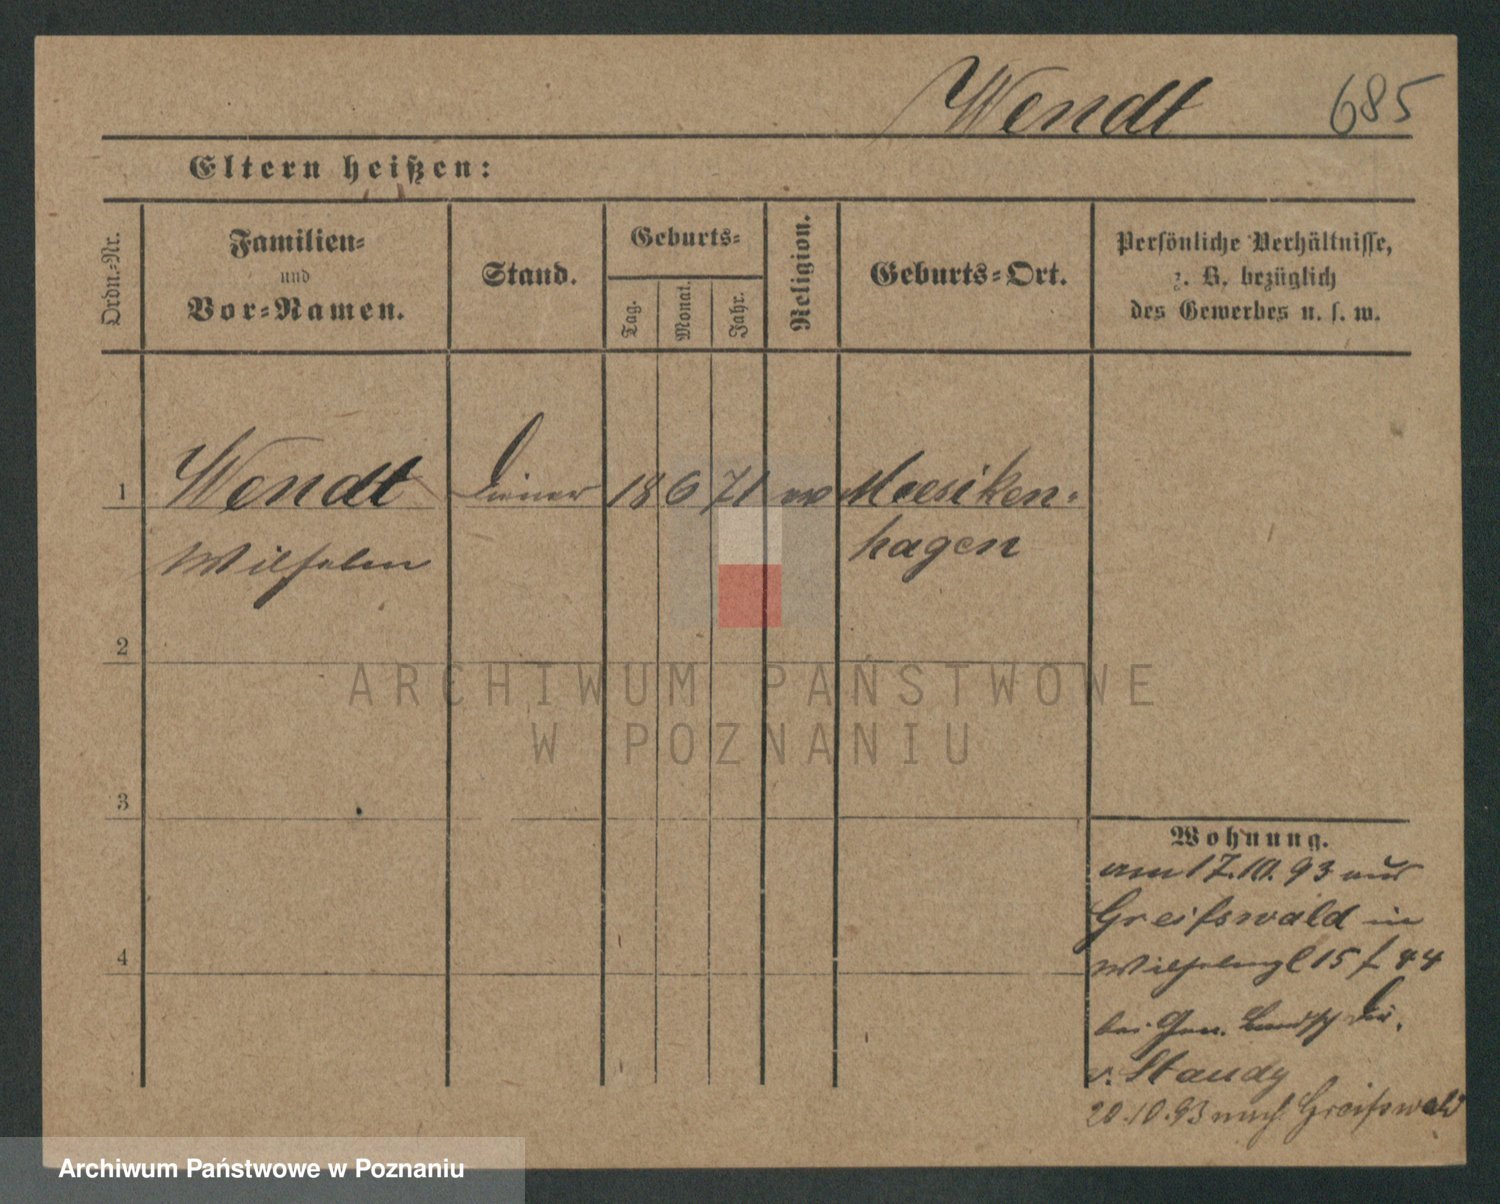 Wendt 685
Eltern heißen:
Ordn.-Nr.
Familien-
und
Vor-Namen.
Stand.
Geburts-
Tag.
Monat.
Jahr.
Religion.
Geburts-Ort.
Persönliche Verhältnisse,
z. B. bezüglich
des Gewerbes u. s. w.
1 Wendt Diener 18 6 71 ev Meesiken-
Wilhelm hagen
2
ARCHIWUM PAŃSTWOWE
W POZNANIU
3
Wohnung.
am 17.10.93 aus
Greifswald in
Wilhelmpl 15
4
bei Gen. Landsch Dir.
v. Staudy
20.10.93 nach Greifswald
Archiwum Państwowe w Poznaniu